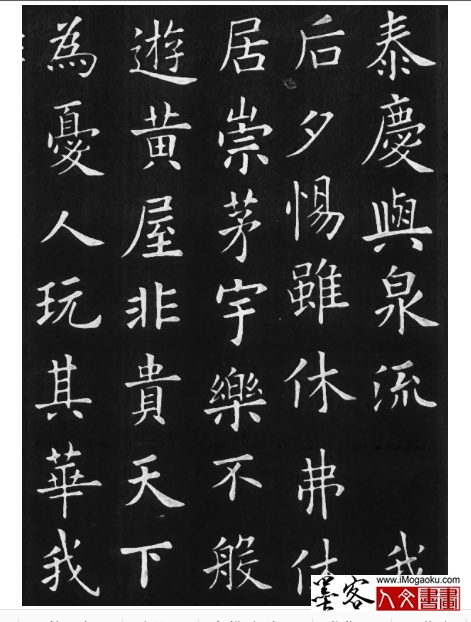 泰慶與泉流 我
后夕惕雖休弗休
居崇茅宇樂不般
遊黄屋非貴天下
為憂人玩其華我
墨客
www.iMogaoku.com
人文書畫